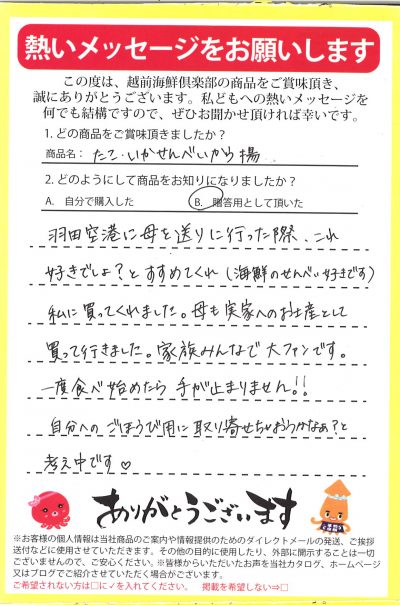 熱いメッセージをお願いします
この度は、越前海鮮倶楽部の商品をご賞味頂き、
誠にありがとうございます。私どもへの熱いメッセージを
何でも結構ですので、ぜひお聞かせ頂ければ幸いです。
1. どの商品をご賞味頂きましたか？
商品名： たこ・いかせんべいから揚
2. どのようにして商品をお知りになりましたか？
A. 自分で購入した B. 贈答用として頂いた
羽田空港に母を送りに行った際、これ
好きでしょ？とすすめてくれ（海鮮のせんべい好きです）
私に買ってくれました。母も実家へのお土産として
買って行きました。家族みんなで大ファンです。
一度食べ始めたら手が止まりません!!
自分へのごほうび用に取り寄せちゃおうかなぁ？と
考え中です♡
ありがとうございます
※お客様の個人情報は当社商品のご案内や情報提供のためのダイレクトメールの発送、ご挨拶
送付などに使用させていただきます。その他の目的に使用したり、外部に開示することは一切
ございませんので、ご安心ください。※皆様からいただいたお声を当社カタログ、ホームページ
又はブログでご紹介させていただく場合がございます。
ご希望されない方は□に✓を入れてください。 掲載を希望しない⇒□